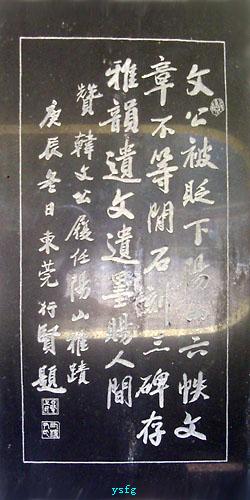 文公被貶下陽山六帙文
章不等閒石刻三碑存
雅韻遺文遺墨賜人間
贊韓文公履任陽山雅蹟
庚辰冬日東莞行賢題
ysfg